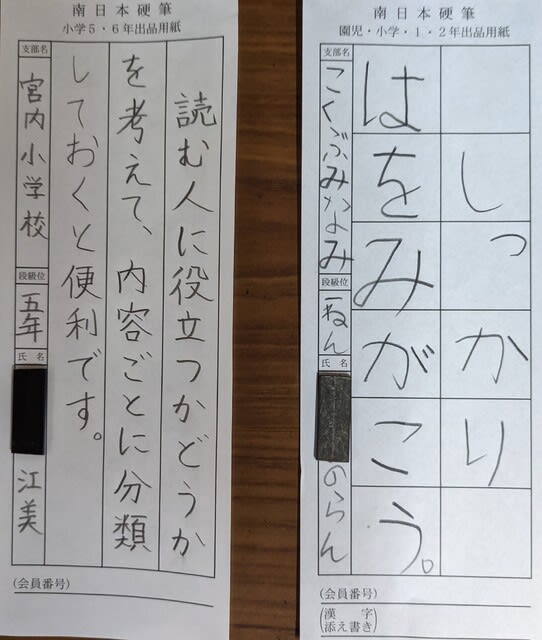 南日本硬筆
小学5・6年出品用紙
読む人に役立つかどうか
を考えて、内容ごとに分類
しておくと便利です。
支部名
宮内小学校
段級位
五年
氏名
江美
(会員番号)
南日本硬筆
園児・小学・1・2年出品用紙
しっかり
はをみがこう。
支部名
こくぶみなみ
段級位
一ねん
氏名
のらん
(会員番号)
(漢字
添え書き)